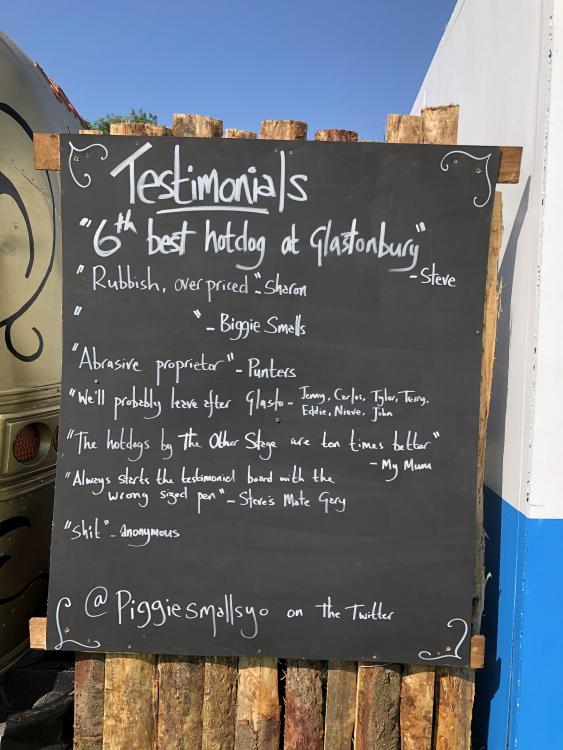 Testimonials
"6th best hotdog at Glastonbury"
- Steve
"Rubbish, over priced" - Sharon
"            " - Biggie Smalls
"Abrasive proprietor" - Punters
"We'll probably leave after Glasto - Jenny, Carlos, Tyler, Terry,
Eddie, Nieve, John
"The hotdogs by The Other Stage are ten times better"
- My Mum
"Always starts the testimonial board with the
wrong sized pen" - Steve's Mate Gary
"Shit" - anonymous
@Piggiesmallsyo on The Twitter